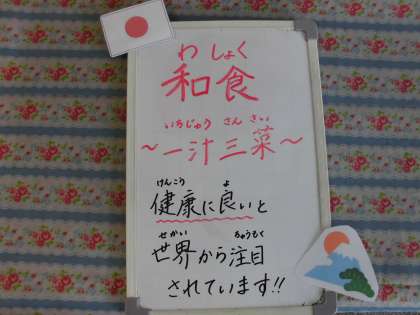 わ しょく
和食
いちじゅう さん さい
～一汁三菜～
けんこう よ
健康に良いと
せかい ちゅうもく
世界から注目
されています!!